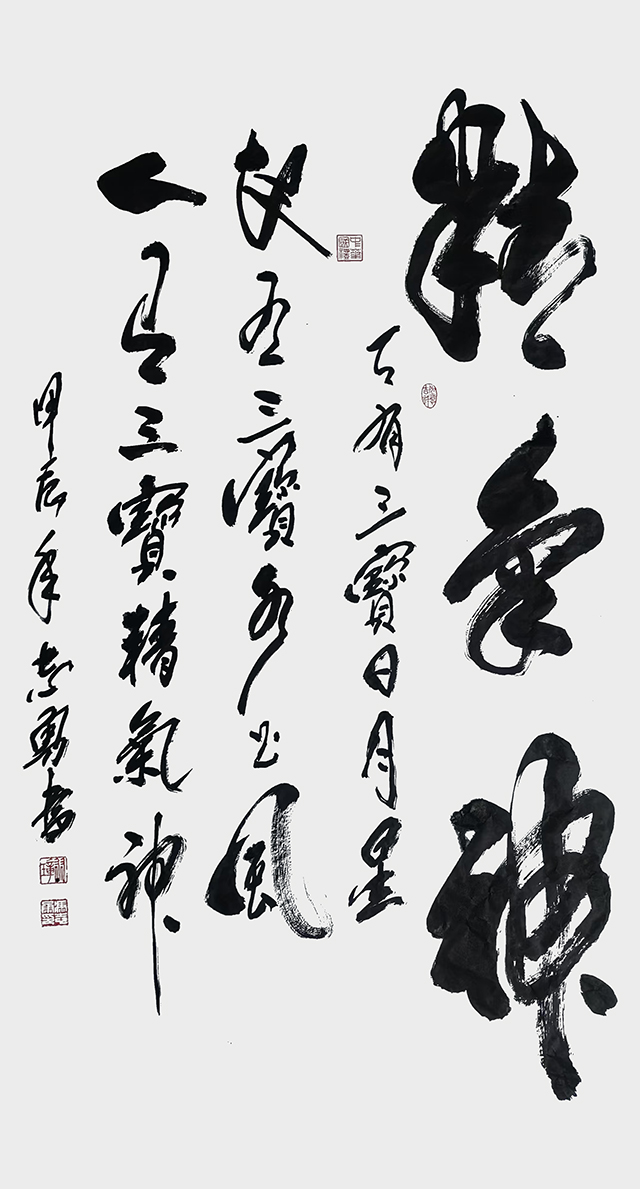 精氣神
天有三寶日月星
地有三寶水火風
人有三寶精氣神
甲辰年志勇書